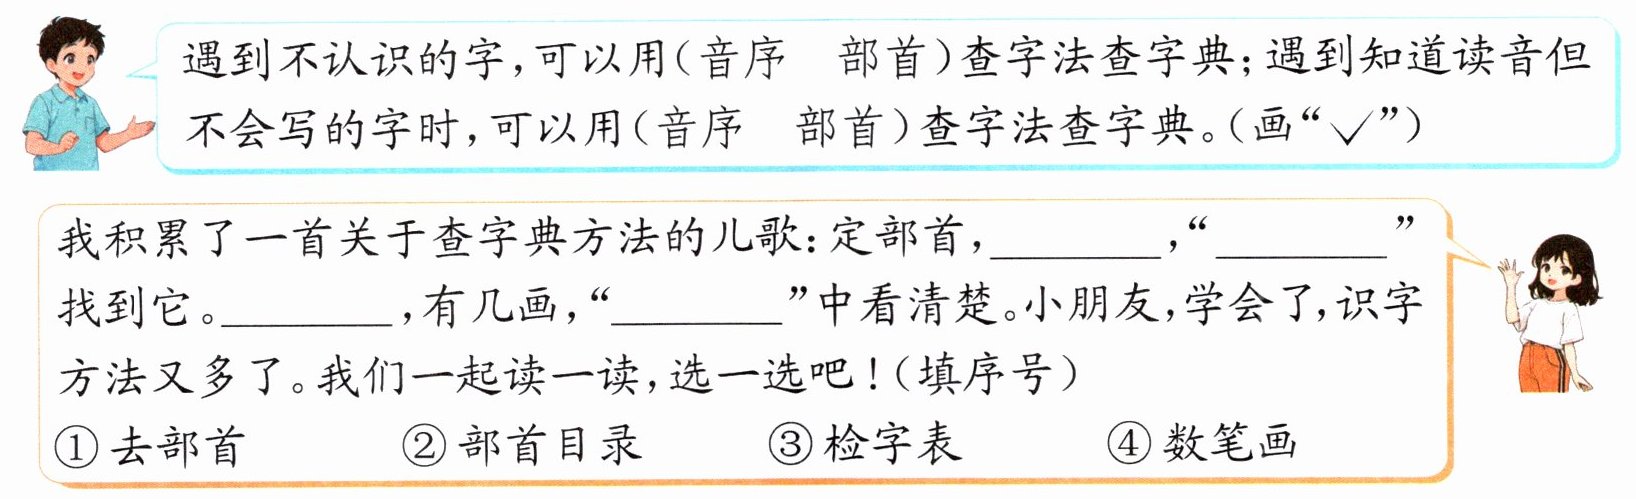 遇到不认识的字,可以用(音序　部首)查字法查字典;遇到知道读音但
不会写的字时,可以用(音序　部首)查字法查字典。(画“✓”)
我积累了一首关于查字典方法的儿歌:定部首,________,“________”
找到它。________,有几画,“________”中看清楚。小朋友,学会了,识字
方法又多了。我们一起读一读,选一选吧!(填序号)
①去部首　②部首目录　③检字表　④数笔画